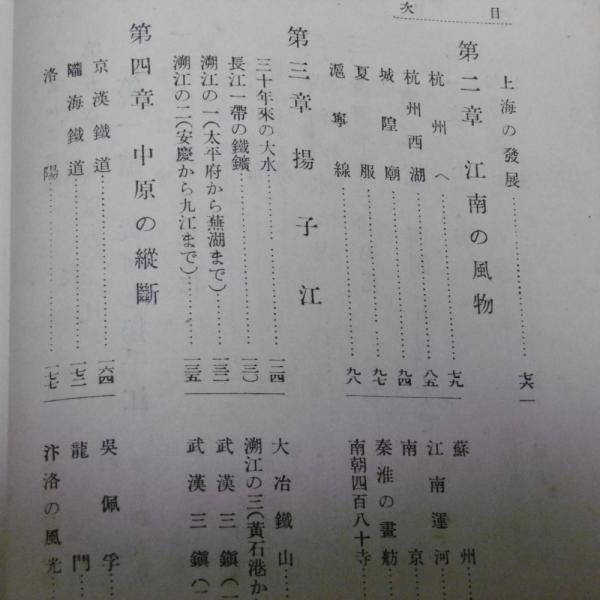 目次
上海の發展……七六
第二章 江南の風物
杭州へ……七九
杭州西湖……八五
城隍廟……九四
夏服……九七
滬寧線……九八
蘇州
江南運河
南京
秦淮の畫舫
南朝四百八十寺
第三章 揚子江
三十年來の大水……一二四
長江一帶の鐵鑛……一三〇
溯江の一(太平府から蕪湖まで)……一三二
溯江の二(安慶から九江まで)……一三五
大冶鐵山……
溯江の三(黃石港か
武漢三鎭(一
武漢三鎭(
第四章 中原の縱斷
京漢鐵道……一六四
隴海鐵道……一七二
洛陽……一七七
吳佩孚……
龍門……
汴洛の風光……